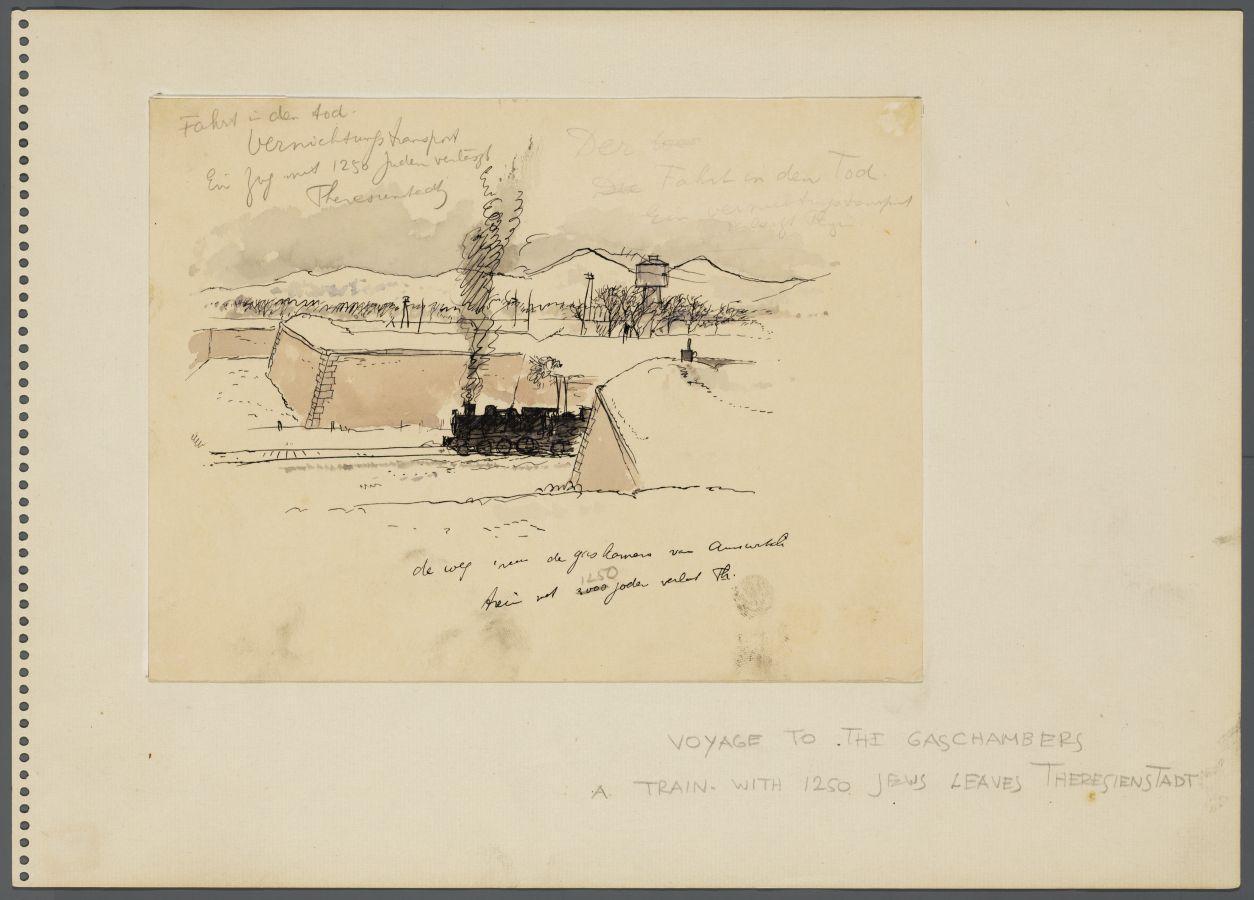 Fahrt in den tod.
Vernichtungstransport
Ein Zug mit 1250 Juden verlässt
Theresienstadt
Der
Die Fahrt in den Tod.
Ein vernichtungstransport
de weg naar de gaskamers van Auswitch
1250
trein met 3000 joden verlaat Th.
VOYAGE TO THE GASCHAMBERS
A TRAIN WITH 1250 JEWS LEAVES THERESIENSTADT